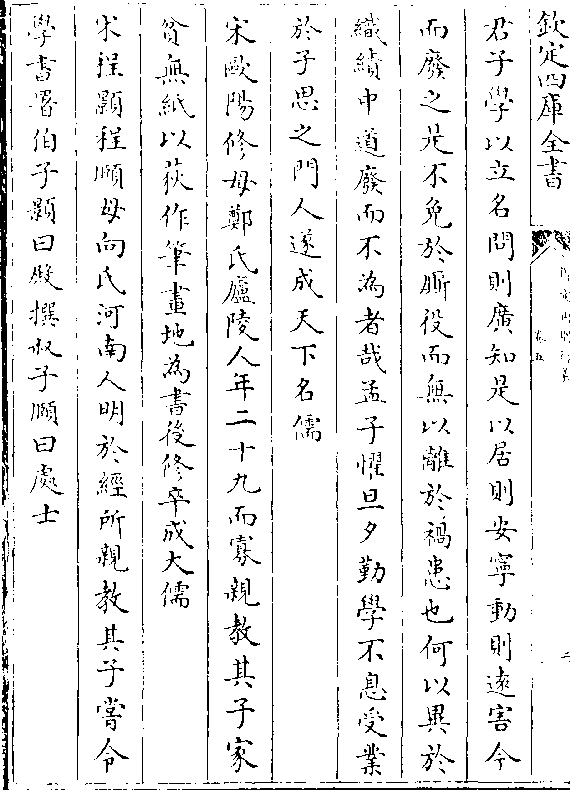 欽定四庫全書
卷五
君子學以立名問則廣知是以居則安寧動則遠害今
而廢之是不免於厮役而無以離於禍患也何以異於
織績中道廢而不為者哉孟子懼旦夕勤學不息受業
於子思之門人遂成天下名儒
宋歐陽修母鄭氏廬陵人年二十九而寡親教其子家
貧無紙以荻作筆畫地為書後修卒成大儒
宋程顥程頤母向氏河南人明於經所親教其子嘗令
學書署伯子顥曰殿撰叔子頤曰處士